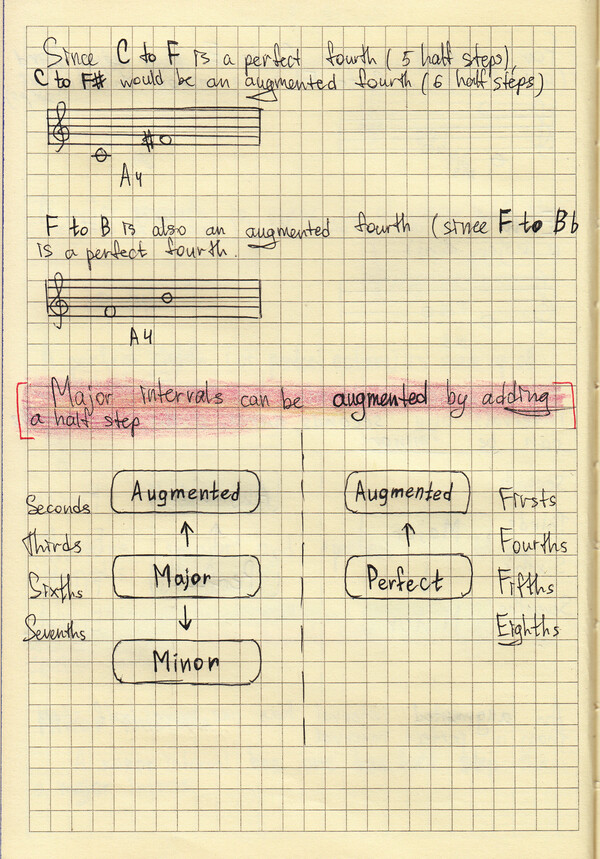 Since C to F is a perfect fourth (5 half steps),
C to F# would be an augmented fourth (6 half steps)
#
A4
F to B is also an augmented fourth (since F to Bb
is a perfect fourth.
A4
Major intervals can be augmented by adding
a half step
Seconds
Thirds
Sixths
Sevenths
Augmented
Major
Minor
Augmented
Perfect
Firsts
Fourths
Fifths
Eighths